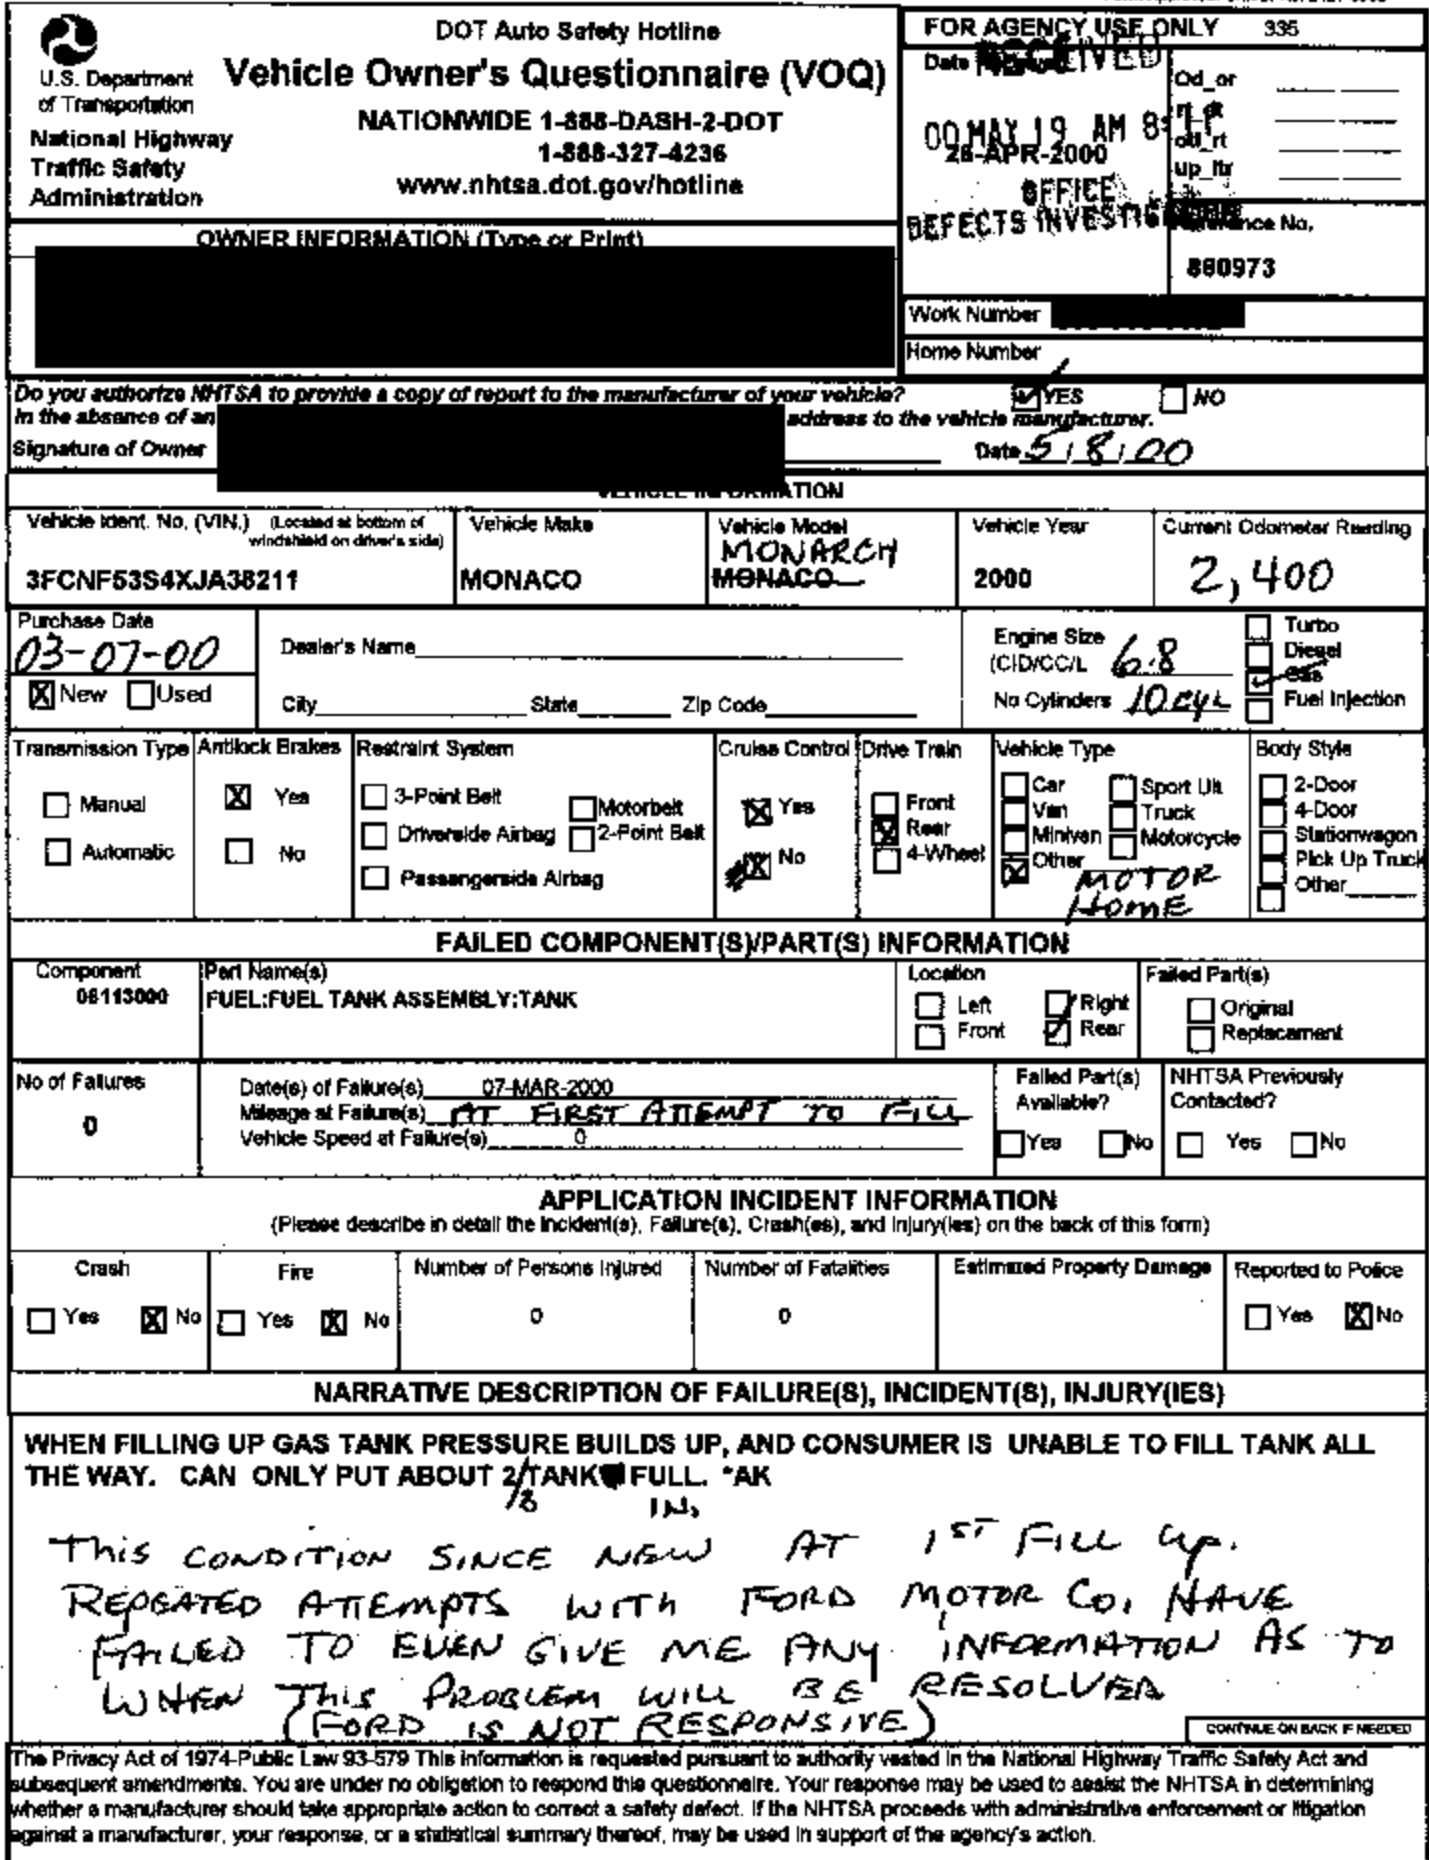 DOT Auto Safety Hotline
Vehicle Owner's Questionnaire (VOQ)
NATIONWIDE 1-888-DASH-2-DOT
1-888-327-4236
www.nhtsa.dot.gov/hotline
U.S. Department
of Transportation
National Highway
Traffic Safety
Administration
FOR AGENCY USE ONLY 335
Date RECEIVED
Od_or
rt_dt
od_rt
up_ltr
00 MAY 19 AM 8:11
26-APR-2000
OFFICE
DEFECTS INVESTIG
Reference No.
860973
OWNER INFORMATION (Type or Print)
Work Number
Home Number
Do you authorize NHTSA to provide a copy of report to the manufacturer of your vehicle? YES NO
In the absence of an address to the vehicle manufacturer.
Signature of Owner Date 5/8/00
VEHICLE INFORMATION
Vehicle Ident. No. (VIN.) (Located at bottom of windshield on driver's side)
3FCNF53S4XJA38211
Vehicle Make
MONACO
Vehicle Model
MONARCH
MONACO
Vehicle Year
2000
Current Odometer Reading
2,400
Purchase Date
03-07-00
X New Used
Dealer's Name
City State Zip Code
Engine Size
(CID/CC/L 6.8
No Cylinders 10 CYL
Turbo
Diesel
Gas
Fuel Injection
Transmission Type
Manual
Automatic
Antilock Brakes
X Yes
No
Restraint System
3-Point Belt
Driverside Airbag
Passangerside Airbag
Motorbelt
2-Point Belt
Cruise Control
X Yes
X No
Drive Train
Front
X Rear
4-Wheel
Vehicle Type
Car
Van
Minivan
X Other
Sport Ult
Truck
Motorcycle
MOTOR
HOME
Body Style
2-Door
4-Door
Stationwagon
Pick Up Truck
Other
FAILED COMPONENT(S)/PART(S) INFORMATION
Component
06113000
Part Name(s)
FUEL:FUEL TANK ASSEMBLY:TANK
Location
Left Right
Front Rear
Failed Part(s)
Original
Replacement
No of Failures
0
Date(s) of Failure(s) 07-MAR-2000
Mileage at Failure(s) AT FIRST ATTEMPT TO FILL
Vehicle Speed at Failure(s) 0
Failed Part(s)
Available?
Yes No
NHTSA Previously
Contacted?
Yes No
APPLICATION INCIDENT INFORMATION
(Please describe in detail the Incident(s), Failure(s), Crash(es), and Injury(ies) on the back of this form)
Crash
Yes X No
Fire
Yes X No
Number of Persons Injured
0
Number of Fatalities
0
Estimated Property Damage
Reported to Police
Yes X No
NARRATIVE DESCRIPTION OF FAILURE(S), INCIDENT(S), INJURY(IES)
WHEN FILLING UP GAS TANK PRESSURE BUILDS UP, AND CONSUMER IS UNABLE TO FILL TANK ALL
THE WAY. CAN ONLY PUT ABOUT 2/3 TANK FULL. *AK
IN.
THIS CONDITION SINCE NEW AT 1ST FILL UP.
REPEATED ATTEMPTS WITH FORD MOTOR CO. HAVE
FAILED TO EVEN GIVE ME ANY INFORMATION AS TO
WHEN THIS PROBLEM WILL BE RESOLVED
(FORD IS NOT RESPONSIVE)
CONTINUE ON BACK IF NEEDED
The Privacy Act of 1974-Public Law 93-579 This information is requested pursuant to authority vested in the National Highway Traffic Safety Act and
subsequent amendments. You are under no obligation to respond this questionnaire. Your response may be used to assist the NHTSA in determining
whether a manufacturer should take appropriate action to correct a safety defect. If the NHTSA proceeds with administrative enforcement or litigation
against a manufacturer, your response, or a statistical summary thereof, may be used in support of the agency's action.